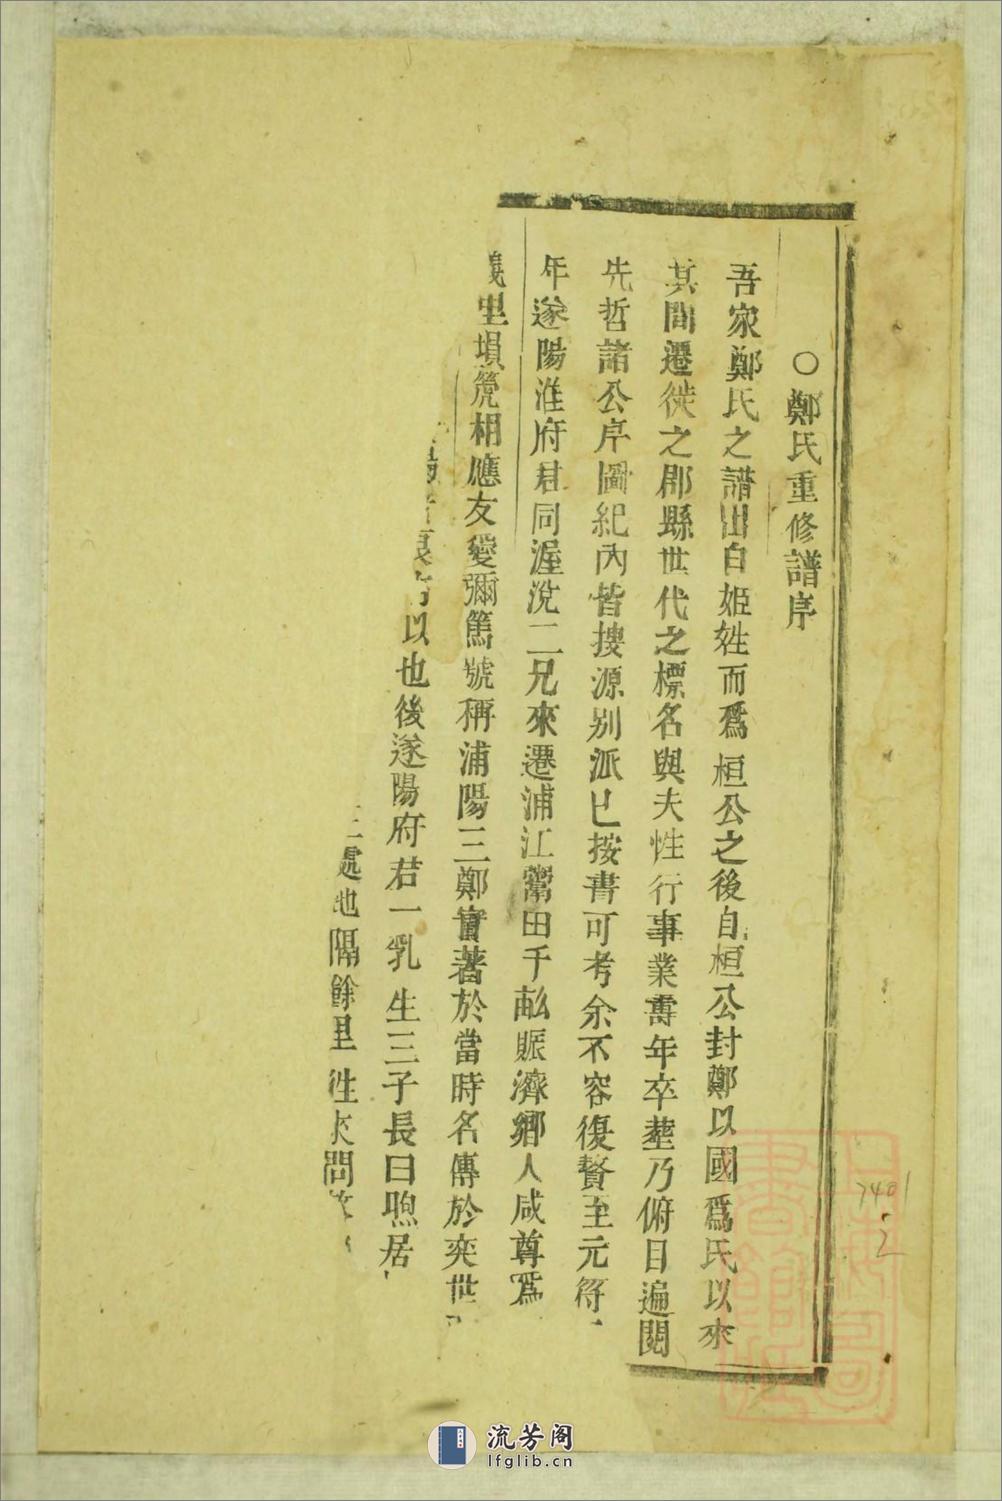 ○鄭氏重修譜序
吾家鄭氏之譜出自姬姓而爲桓公之後自桓公封鄭以國爲氏以來
其間遷徙之郡縣世代之標名與夫性行事業壽年卒塟乃俯目遍閱
先哲諸公序圖紀內皆搜源別派已按書可考余不容復贅至元符
年遂陽淮府君同渥涗二兄來遷浦江鬻田千畝賑濟鄉人咸尊爲
義里塤箎相應友愛彌篤號稱浦陽三鄭實著於當時名傳於奕世
以也後遂陽府君一乳生三子長曰煦居
處地隔餘里徃來問
上海圖書館藏
7401
2
流芳阁
lfglib.cn